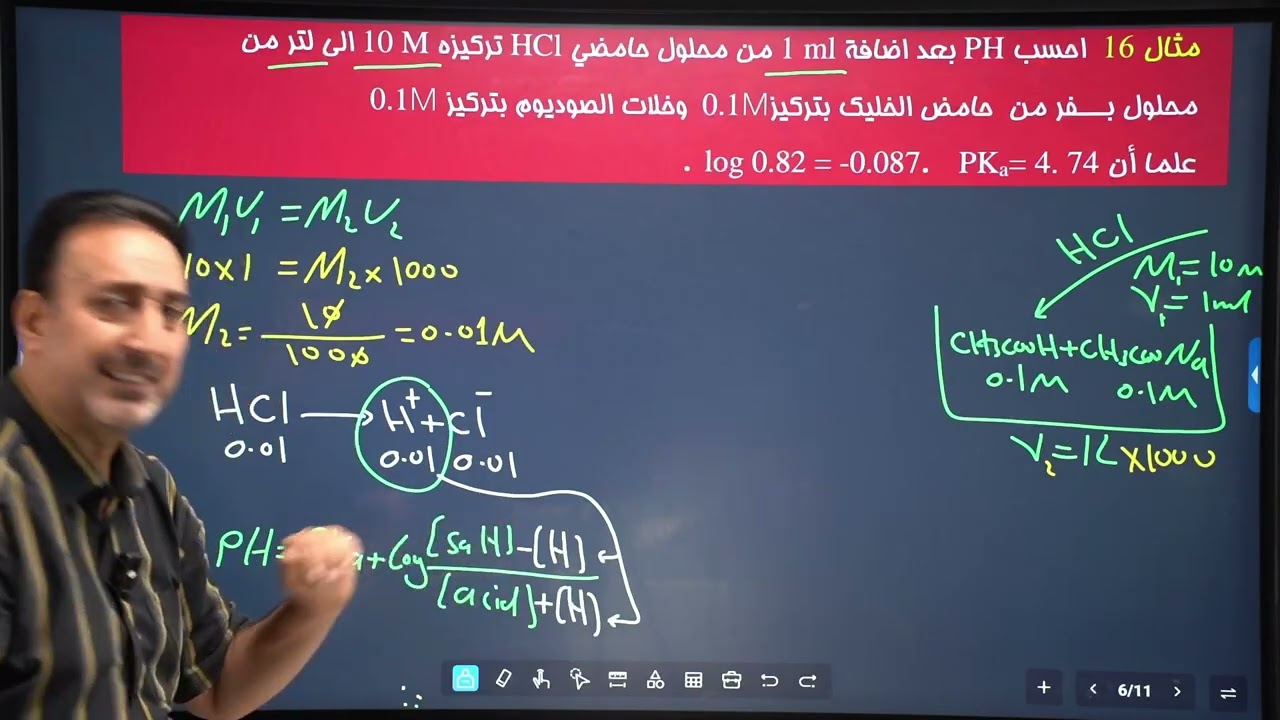 مثال 16 احسب PH بعد اضافة 1 ml من محلول حامضي HCl تركيزه 10 M الى لتر من
محلول بـــفر من حامض الخليك بتركيز0.1M وخلات الصوديوم بتركيز 0.1M
علما أن PKₐ= 4. 74 .log 0.82 = -0.087 .
M₁V₁ = M₂V₂
10x1 = M₂x1000
M₂= 10/1000 = 0.01M
HCl → H⁺ + Cl⁻
0.01 0.01 0.01
PH= a + Log [SalH]-[H]
[acid]+[H]
HCl
M₁= 10M
V₁= 1ml
CH3COOH+CH3COONa
0.1M 0.1M
V₂=1L x1000
6/11